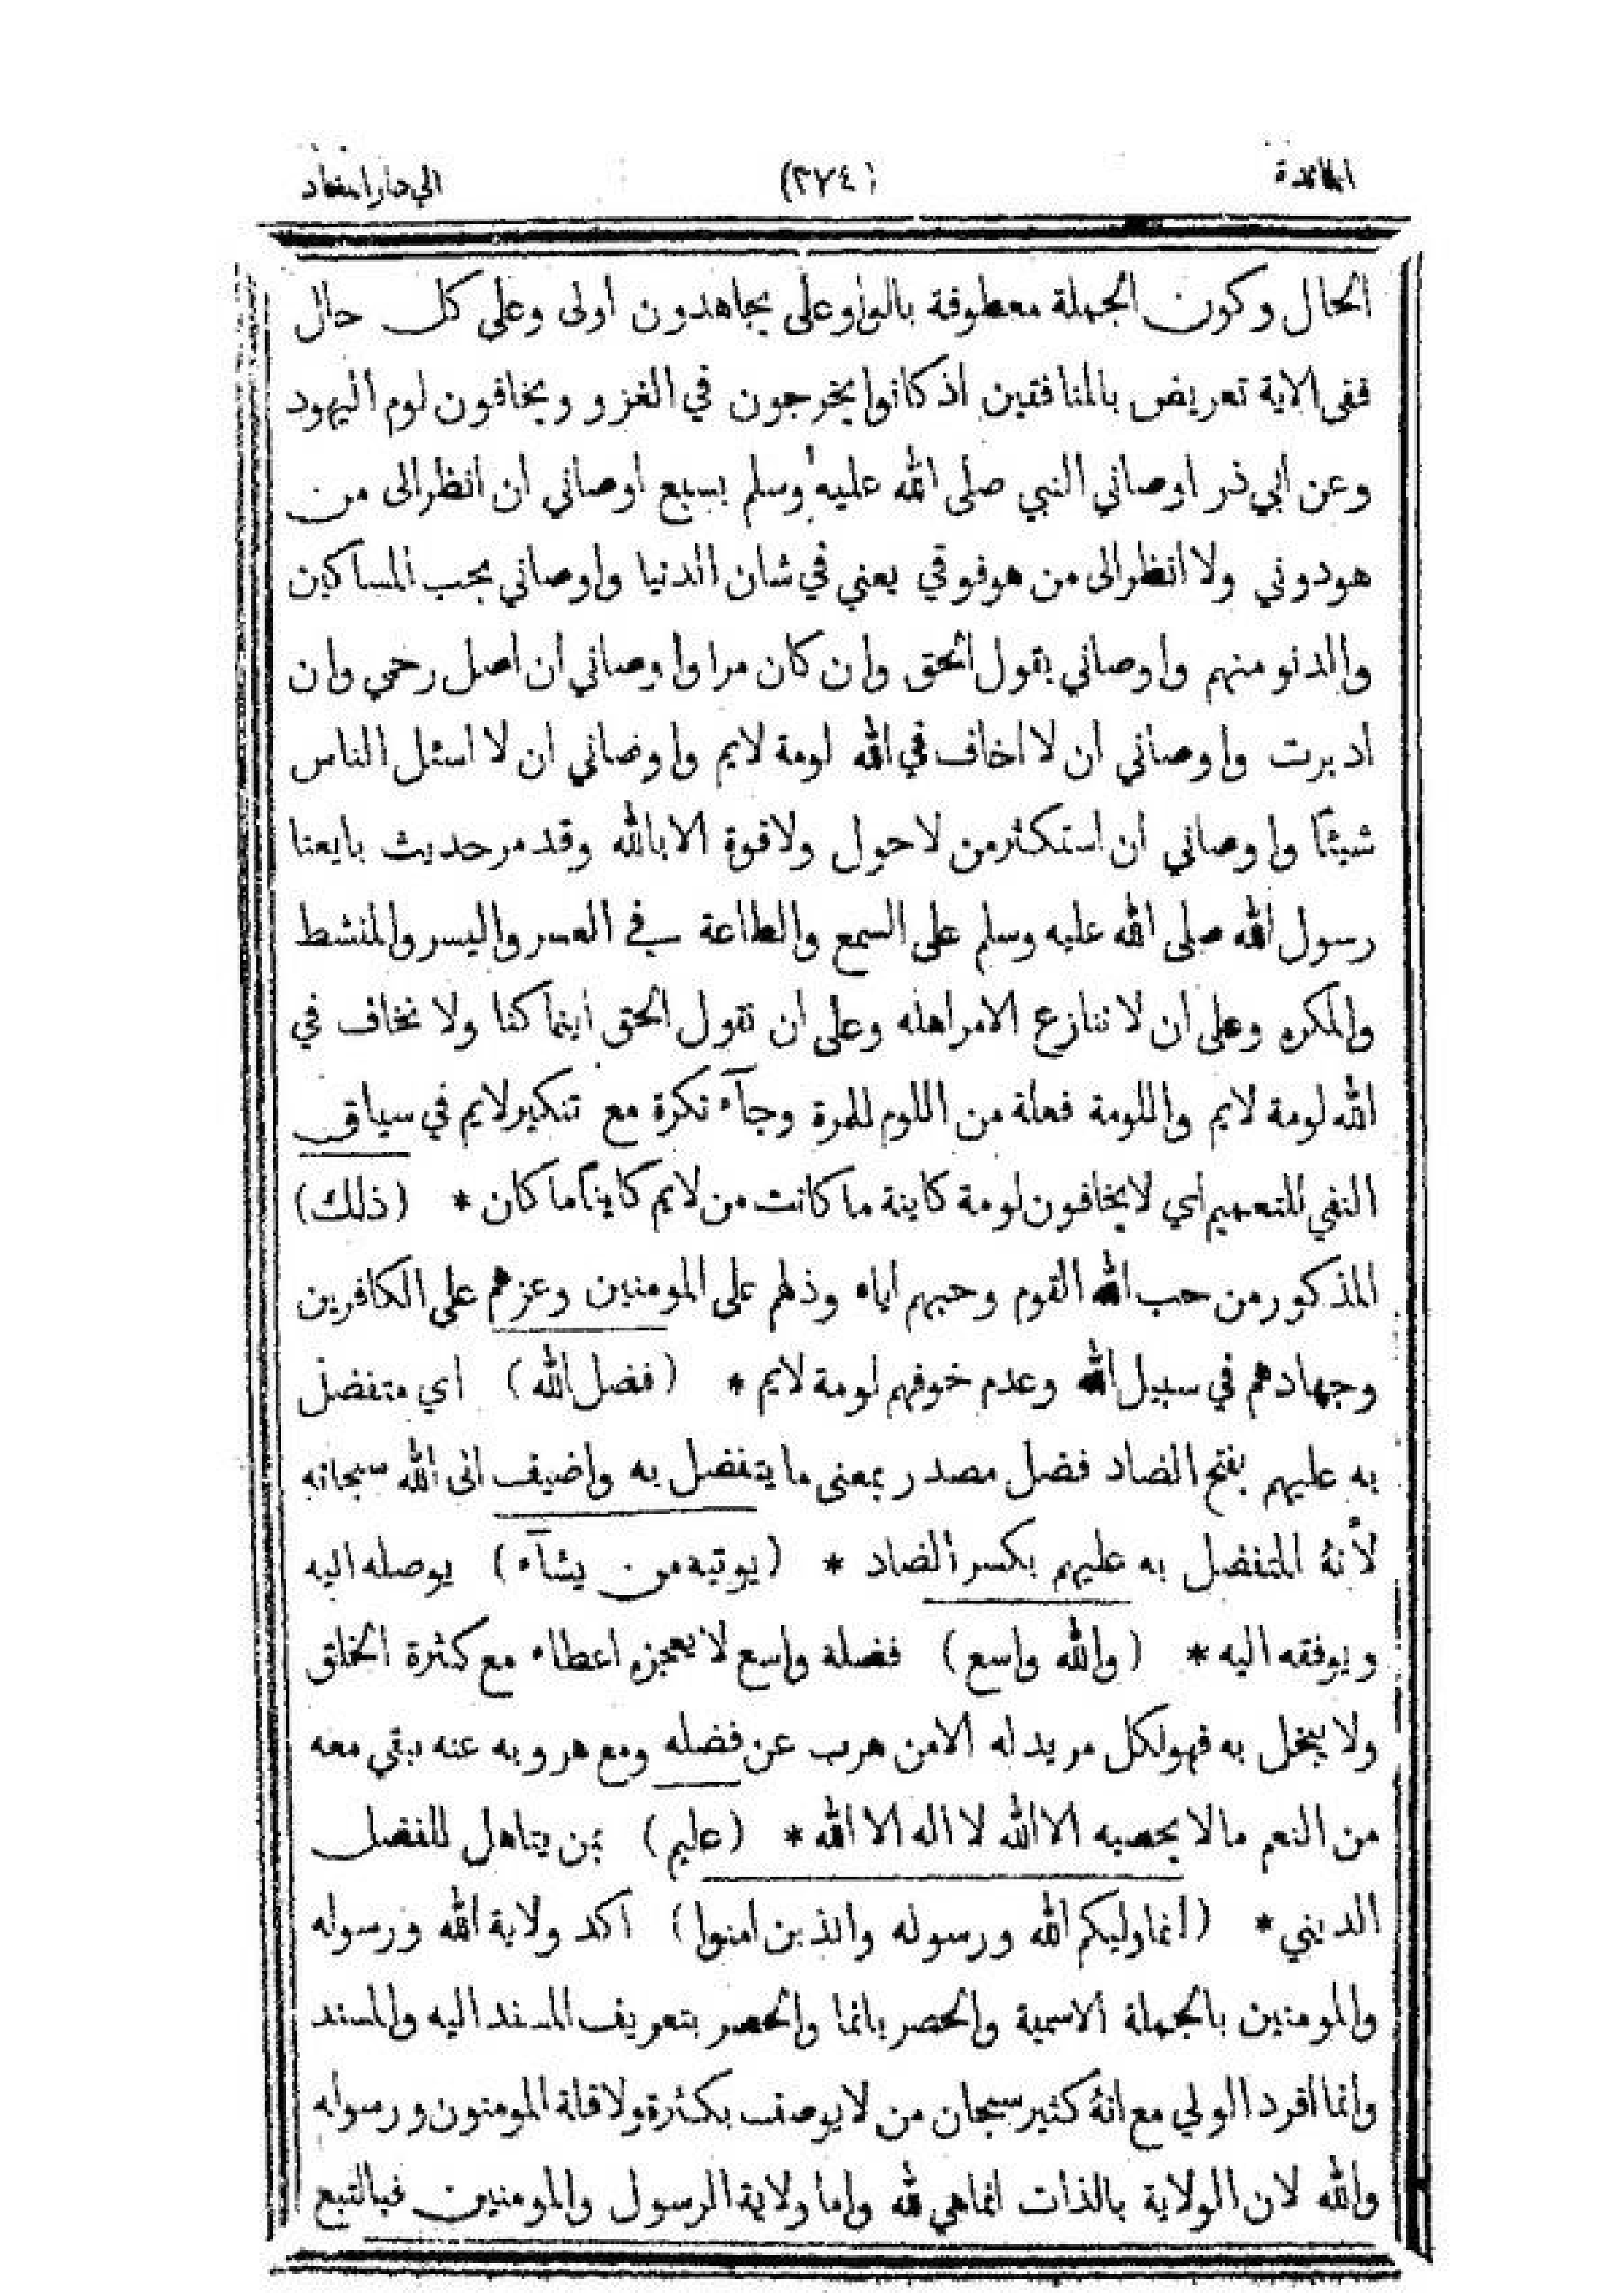 المائدة (٣٧٤) الي دار المعاد
الحال وكون الجملة معطوفة بالواو على يجاهدون اولى وعلى كل حال
ففى الاية تعريض بالمنافقين اذ كانوا يخرجون في الغزو ويخافون لوم اليهود
وعن ابي ذر اوصاني النبي صلى الله عليه وسلم بسبع اوصاني ان انظر الى من
هو دوني ولا انظر الى من هو فوقي يعني في شان الدنيا واوصاني بحب المساكين
والدنو منهم واوصاني بقول الحق وان كان مرا واوصاني ان اصل رحمي وان
ادبرت واوصاني ان لا اخاف في الله لومة لايم واوصاني ان لا اسئل الناس
شيئًا واوصاني ان استكثر من لا حول ولا قوة الا بالله وقد مر حديث بايعنا
رسول الله صلى الله عليه وسلم على السمع والطاعة في العسر واليسر والمنشط
والمكره وعلى ان لا ننازع الامر اهله وعلى ان نقول الحق أينما كنا ولا نخاف في
الله لومة لايم واللومة فعلة من اللوم للمرة وجآء نكرة مع تنكير لايم في سياق
النفي للتعميم اي لا يخافون لومة كاينة ما كانت من لايم كاينًا ما كان * (ذلك)
المذكور من حب الله القوم وحبهم اياه وذلهم على المومنين وعزهم على الكافرين
وجهادهم في سبيل الله وعدم خوفهم لومة لايم * (فضل الله) اي متفضل
به عليهم بفتح الضاد فضل مصدر بمعنى ما يتفضل به واضيف الى الله سبحانه
لأنهُ المتفضل به عليهم بكسر الضاد * (يوتيه من يشآء) يوصله اليه
ويوفقه اليه * (والله واسع) فضله واسع لا يعجزه اعطاء مع كثرة الخلق
ولا يبخل به فهو لكل مريد له الا من هرب عن فضله ومع هروبه عنه بقى معه
من النعم ما لا يحصيه الا الله لا اله الا الله * (عليم) بمن يتاهل للفضل
الديني * (انما وليكم الله ورسوله والذين امنوا) اكد ولاية الله ورسوله
والمومنين بالجملة الاسمية والحصر بانما والحصر بتعريف المسند اليه والمسند
وانما افرد الولي مع انهُ كثير سبحان من لا يوصف بكثرة ولا قلة المومنون ورسوله
والله لان الولاية بالذات انما هي لله واما ولاية الرسول والمومنين فبالتبع